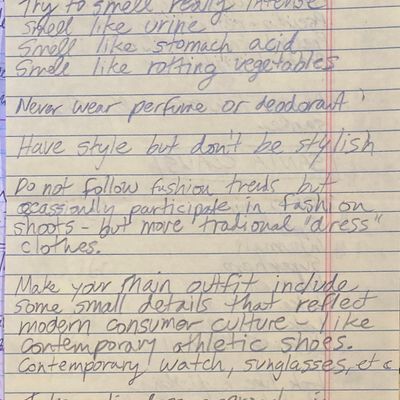 Try to smell really intense
smell like urine
Smell like stomach acid
Smell like rotting vegetables
Never wear perfume or deodorant
Have style but don't be stylish
Do not follow fashion trends but
ocassionly participate in fashion
shoots - but more tradional "dress"
clothes.
Make your main outfit include
some small details that reflect
modern consumer culture - like
contemporary athletic shoes.
Contemporary watch, sunglasses, etc